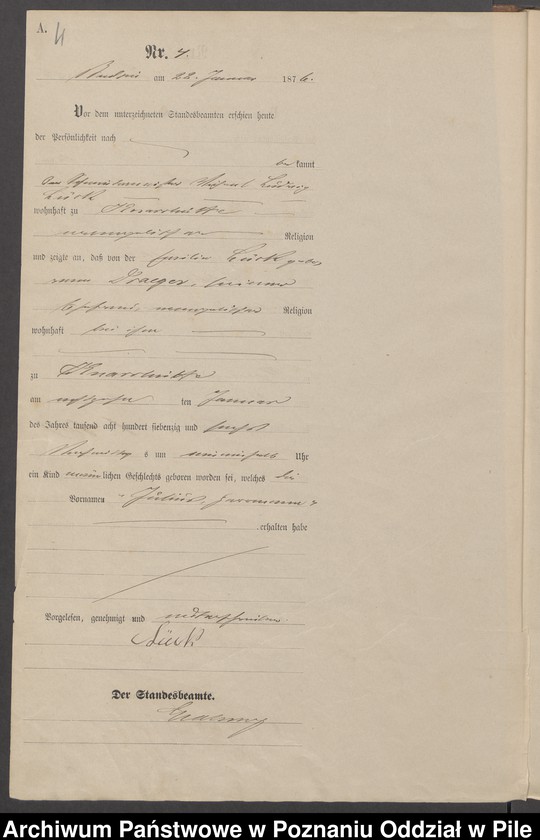 A. 4
Nr. 4.
am 22. Januar 1876.
Vor dem unterzeichneten Standesbeamten erschien heute
der Persönlichkeit nach
bekannt
Ludwig
Lück
wohnhaft zu
evangelischer Religion
und zeigte an, daß von der Emilie Lück gebo-
renen Draeger, seiner
Ehefrau, evangelischer Religion
wohnhaft bei ihm
zu
am achtzehn ten Januar
des Jahres tausend acht hundert siebenzig und sechs
Nachmittags um Uhr
ein Kind männlichen Geschlechts geboren worden sei, welches die
Vornamen Julius, Hermann
erhalten habe
Vorgelesen, genehmigt und unterschrieben
Lück
Der Standesbeamte.
Archiwum Państwowe w Poznaniu Oddział w Pile